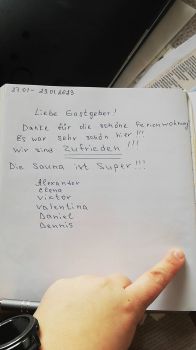 27.01 - 29.01 2023
Liebe Gastgeber!
Danke für die schöne Ferienwohnung
Es war sehr schön hier!!!
Wir sind Zufrieden!!!
Die Sauna ist Super!!!
Alexander
Elena
Viktor
Valentina
Daniel
Dennis